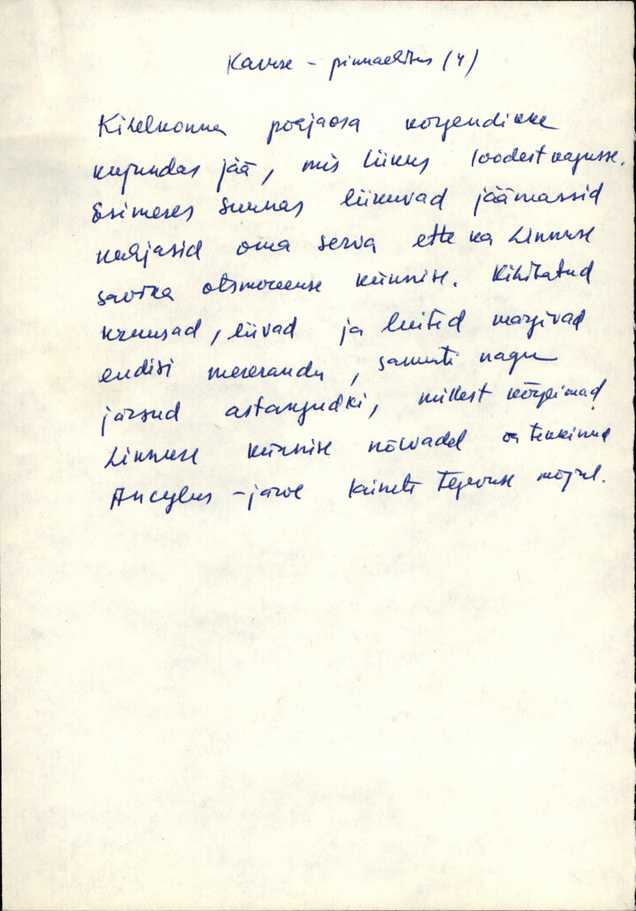 Karuse - pinnaehitus (4)
Kihelkonna põhjaosa kõrgendikke
kujundas jää, mis liikus loodest kagusse.
Esimeses suunas liikuvad jäämassid
kuhjasid oma serva ette ka Linnuse
savika otsmoreense künnise. Kihitatud
kruusad, liivad ja luited märgivad
endisi mererandu, samuti nagu
järsud astangudki, millest kõrgemad
Linnuse künnise nõlvadel on tekkinud
Ancylus - järve lainete tegevuse mõjul.